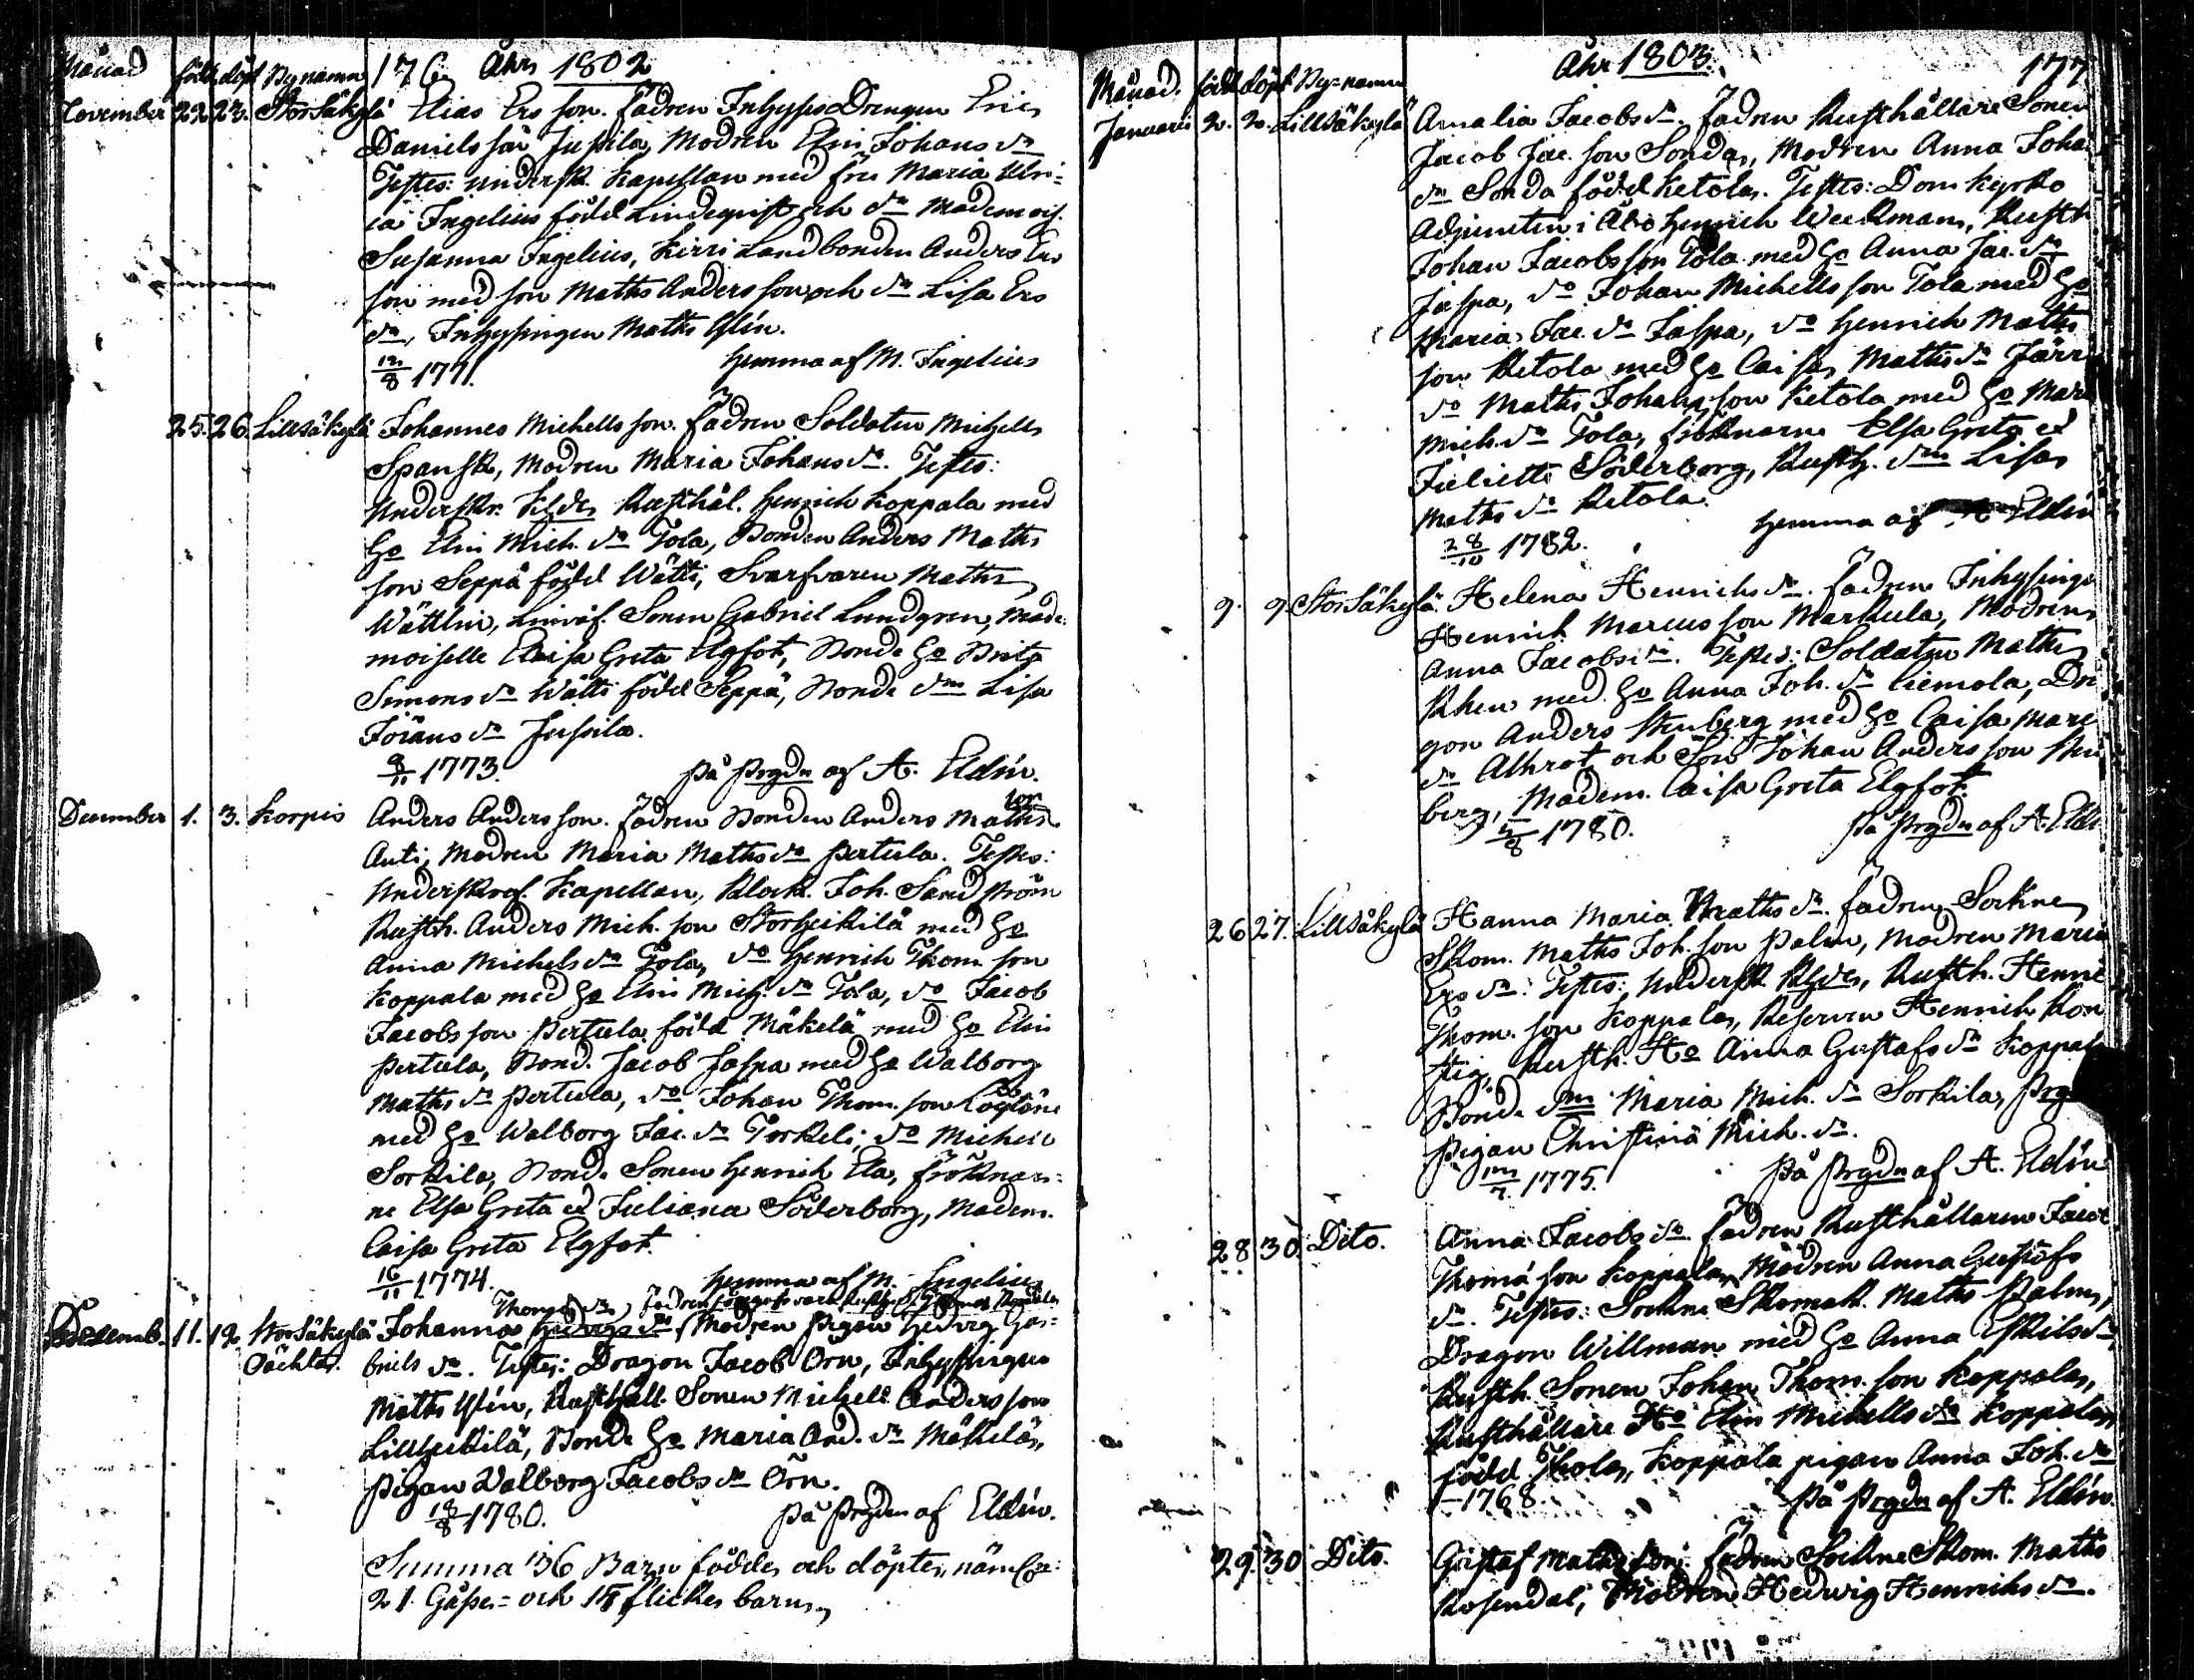 Månad född döpt Bynamn 176 Åhr 1802
November 22. 23. Storsäkylä Elias Ers son. Fadren Inhyses Drengen Eric
Daniels son Jussila, Modren Elin Johans dr
Testes: underskr. Kapellan med fru Maria Ulri-
ca Ingelius född Lindeqvist och dr Mademois.
Susanna Ingelius, Kirri Landbonden Anders Ers
son med son Maths Anders son och dr Lisa Ers
dr, Inhysingen Maths
12/8 1771. hemma af M. Ingelius
25. 26. Lillsäkylä Johannes Michells son. Fadren Soldaten Michell
Spansk, Modren Maria Johans dr. Testes:
Underskr. Rusthål. Henrich Koppala med
Ho Elin Mich. dr Tola, Bonden Anders Maths
son Seppä född Wätti, Svarfvaren Maths
Wättlin, Sonen Gabriel Lundgren, Made-
moiselle Caisa Greta Elgfot, Bonde Ho Brita
Simons dr Wätti född Seppä, Bonde drn Lisa
Jörans dr Jussila.
9/11 1773. På Prgdn af A. Eldin.
December 1. 3. Korpis Anders Anders son. Fadren Bonden Anders Maths son
Anti, Modren Maria Maths dr Pertula. Testes:
Underskref. Kapellan, Klock. Joh. Sandström
Rusth. Anders Mich. son Storheikilä med Ho
Anna Michels dr Tola, do Henrich Thom. son
Koppala med Ho Elin Mich. dr Tola, do Jacob
Jacobs son Pertula född Mäkelä med Ho Elin
Pertula, Bond. Jacob Jaspa med Ho Walborg
Maths dr Pertula, do Johan Thom. son
med Ho Walborg Jac. dr Torkeli, do Michell
Sorkila, Bonde Sonen Henrich Ela, fröknar-
ne Elsa Greta et Juliana Söderborg, Madem.
Caisa Greta Elgfot.
16/11 1774. hemma af M. Ingelius
Thomæ dr, Fadren
Decemb. 11. 12. Storsäkylä Johanna Hedvigs dr Modren pigan Hedvig Ga-
Oächtad. briels dr. Testes: Dragon Jacob Örn, Inhysingen
Maths Rusthåll. Sonen Michell Anders son
Lillheikilä, Bonde Ho Maria And. dr Mäkelä,
pigan Walborg Jacobs dr Örn.
18/8 1780. På Prgdn af Eldin.
Summa 36 Barn födde och döpte, näml.
21. Gåsse- och 15 flicke barn.
Månad. född döpt By-namn Åhr 1803. 177
Januarii 2. 2. Lillsäkylä Amalia Jacobs dr. Fadren Rusthållare Sonen
Jacob Jac. son Sonda, Modren Anna Joha
dr Sonda född Ketola. Testes: Domkyrko
Adjuncten i Åbo Henrich Weckman, Rusth
Johan Jacobs son Tola med Ho Anna Jac. dr
Jaspa, do Johan Michells son Tola med Ho
Maria Jac. dr Jaspa, do Henrich Maths
son Ketola med Ho Caisa Maths dr Järr
do Maths Johans son Ketola med Ho Mari
Mich. dr Tola, fröknarne Elsa Greta et
Julietti Söderborg, Rusth. drn Lisa
Maths dr Ketola.
28/10 1782. hemma af A Eldin
9. 9. Storsäkylä Helena Henrichs dr. Fadren Inhysinge
Henrich Marcus son Markula, Modren
Anna Jacobs dr. Testes: Soldaten Maths
Rhen med Ho Anna Joh. dr Ciemola, Dra
gon Anders Stenberg med Ho Caisa Mare
dr Alhrot och Son Johan Anders son Sten
berg, Madem. Caisa Greta Elgfot.
5/8 1780. På Prgdn af A. Eldi
26 27. Lillsäkylä Hanna Maria Maths dr. Fadren Sockne
Skom. Maths Joh. son Palm, Modren Maria
Ers dr. Testes: Underskr. Rusth. Henric
Thom. son Koppala, Reserven Henrich Kon
stig, Rusth. Ho Anna Gustafs dr Koppala
Bonde drn Maria Mich. dr Sorkila, Prg
pigan Christina Mich. dr.
12/7 1775. På Prgdn af A. Eldin
28 30. Dito. Anna Jacobs dr Fadren Rusthållaren Jacob
Thomæ son Koppala, Modren Anna Gustafs
dr. Testes: Sockne Skomak. Maths Palm,
Dragon Willman med Ho Anna Eskils dr,
Rusth. Sonen Johan Thom. son Koppala,
Rusthållare Ho Elin Michells dr Koppala
född Tola, Koppala pigan Anna Joh. dr
1768. På Prgdn af A. Eldin.
29. 30 Dito. Gustaf Maths son. Fadren Sockne Skom. Maths
Rosendal, Modren Hedwig Henrichs dr.